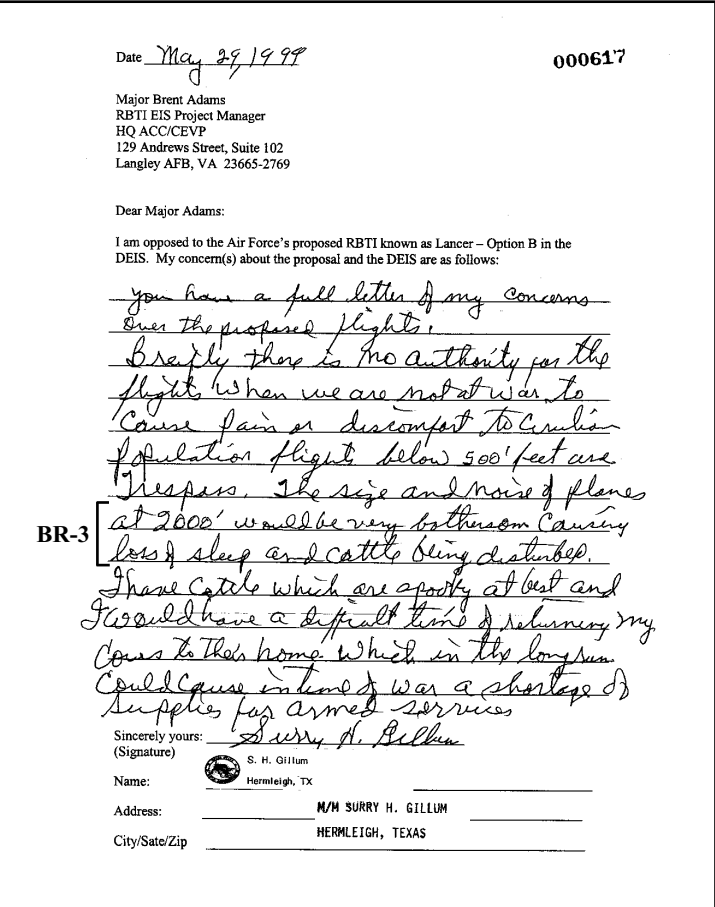 Date May 29, 1999
000617
Major Brent Adams
RBTI EIS Project Manager
HQ ACC/CEVP
129 Andrews Street, Suite 102
Langley AFB, VA 23665-2769
Dear Major Adams:
I am opposed to the Air Force's proposed RBTI known as Lancer – Option B in the
DEIS. My concern(s) about the proposal and the DEIS are as follows:
you have a full letter of my concerns
over the proposed flights.
Breifly there is no authority for the
flights when we are not at war, to
Cause pain or discomfort to Civilian
population flights below 500' feet are
Trespass. The size and noise of planes
BR-3 at 2000' would be very bothersom Causing
loss of sleep and cattle being disturbed.
I have Cattle which are spooky at best and
I would have a difficult time of returning my
Cows to their home which in the long run
Could Cause in time of war a shortage of
Supplies for armed services
Sincerely yours: Surry H. Gillum
(Signature)
S. H. Gillum
Name: Hermleigh, TX
Address: M/M SURRY H. GILLUM
City/Sate/Zip HERMLEIGH, TEXAS